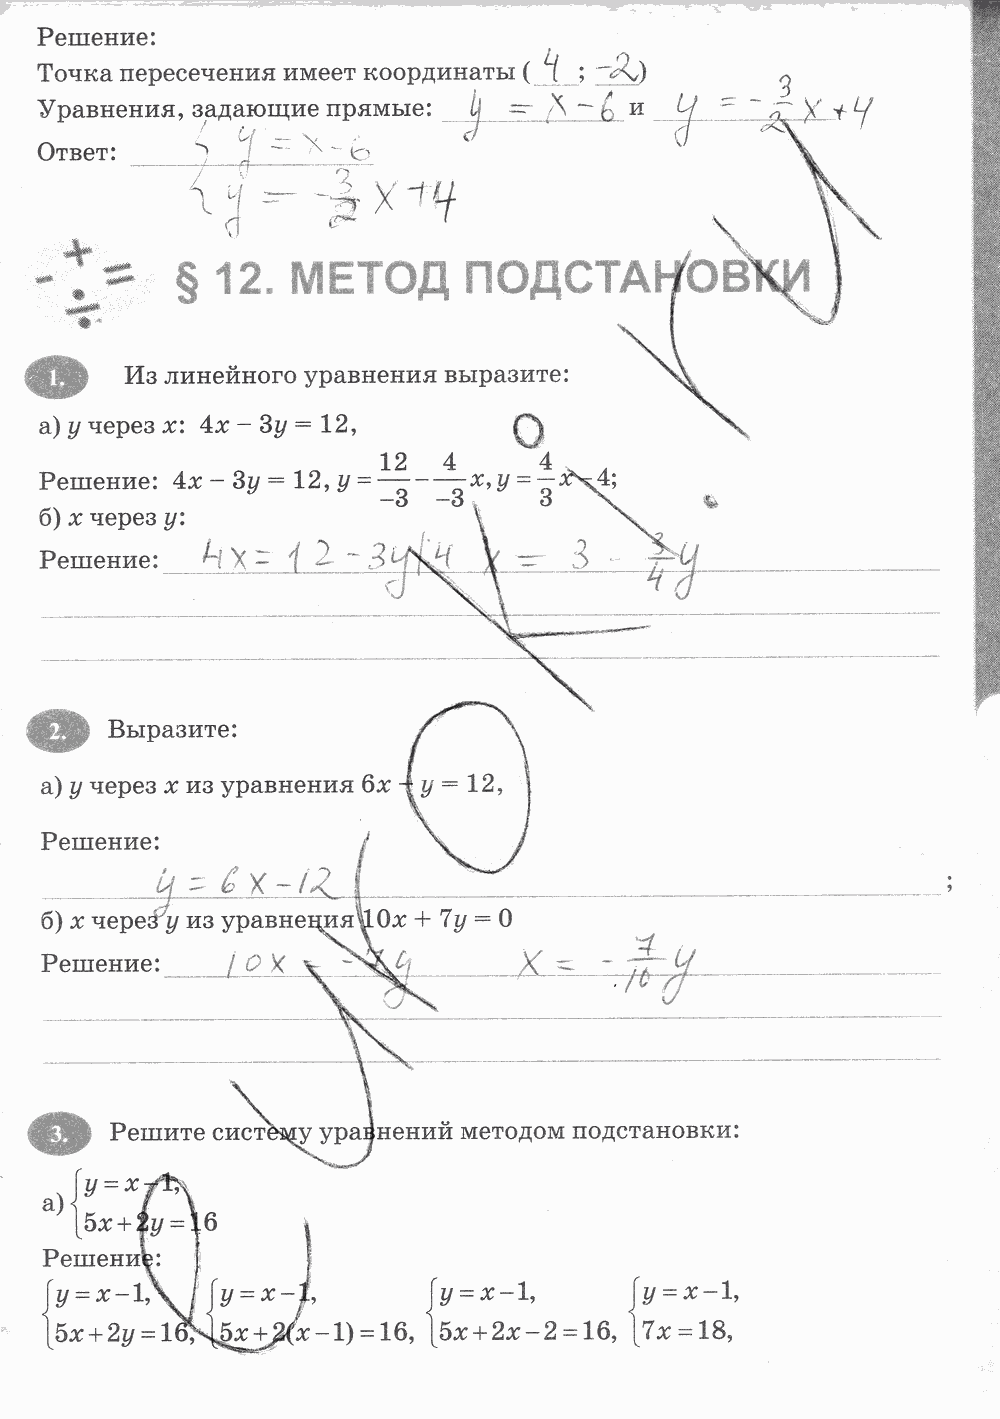 Решение:
Точка пересечения имеет координаты ( 4 ; -2 )
Уравнения, задающие прямые: y = x - 6 и y = -3/2 x + 4
Ответ: { y = x - 6
{ y = -3/2 x + 4
- + = ÷
§ 12. МЕТОД ПОДСТАНОВКИ
1. Из линейного уравнения выразите:
а) y через x: 4x − 3y = 12,
Решение: 4x − 3y = 12, y = 12/−3 − 4/−3 x, y = 4/3 x − 4;
б) x через y:
Решение: 4x = 12 - 3y |:4 x = 3 - 3/4 y
2. Выразите:
а) y через x из уравнения 6x − y = 12,
Решение:
y = 6x - 12 ;
б) x через y из уравнения 10x + 7y = 0
Решение: 10x = -7y x = -7/10 y
3. Решите систему уравнений методом подстановки:
а) { y = x − 1,
5x + 2y = 16
Решение:
{ y = x − 1, { y = x − 1, { y = x − 1, { y = x − 1,
5x + 2y = 16, 5x + 2(x − 1) = 16, 5x + 2x − 2 = 16, 7x = 18,